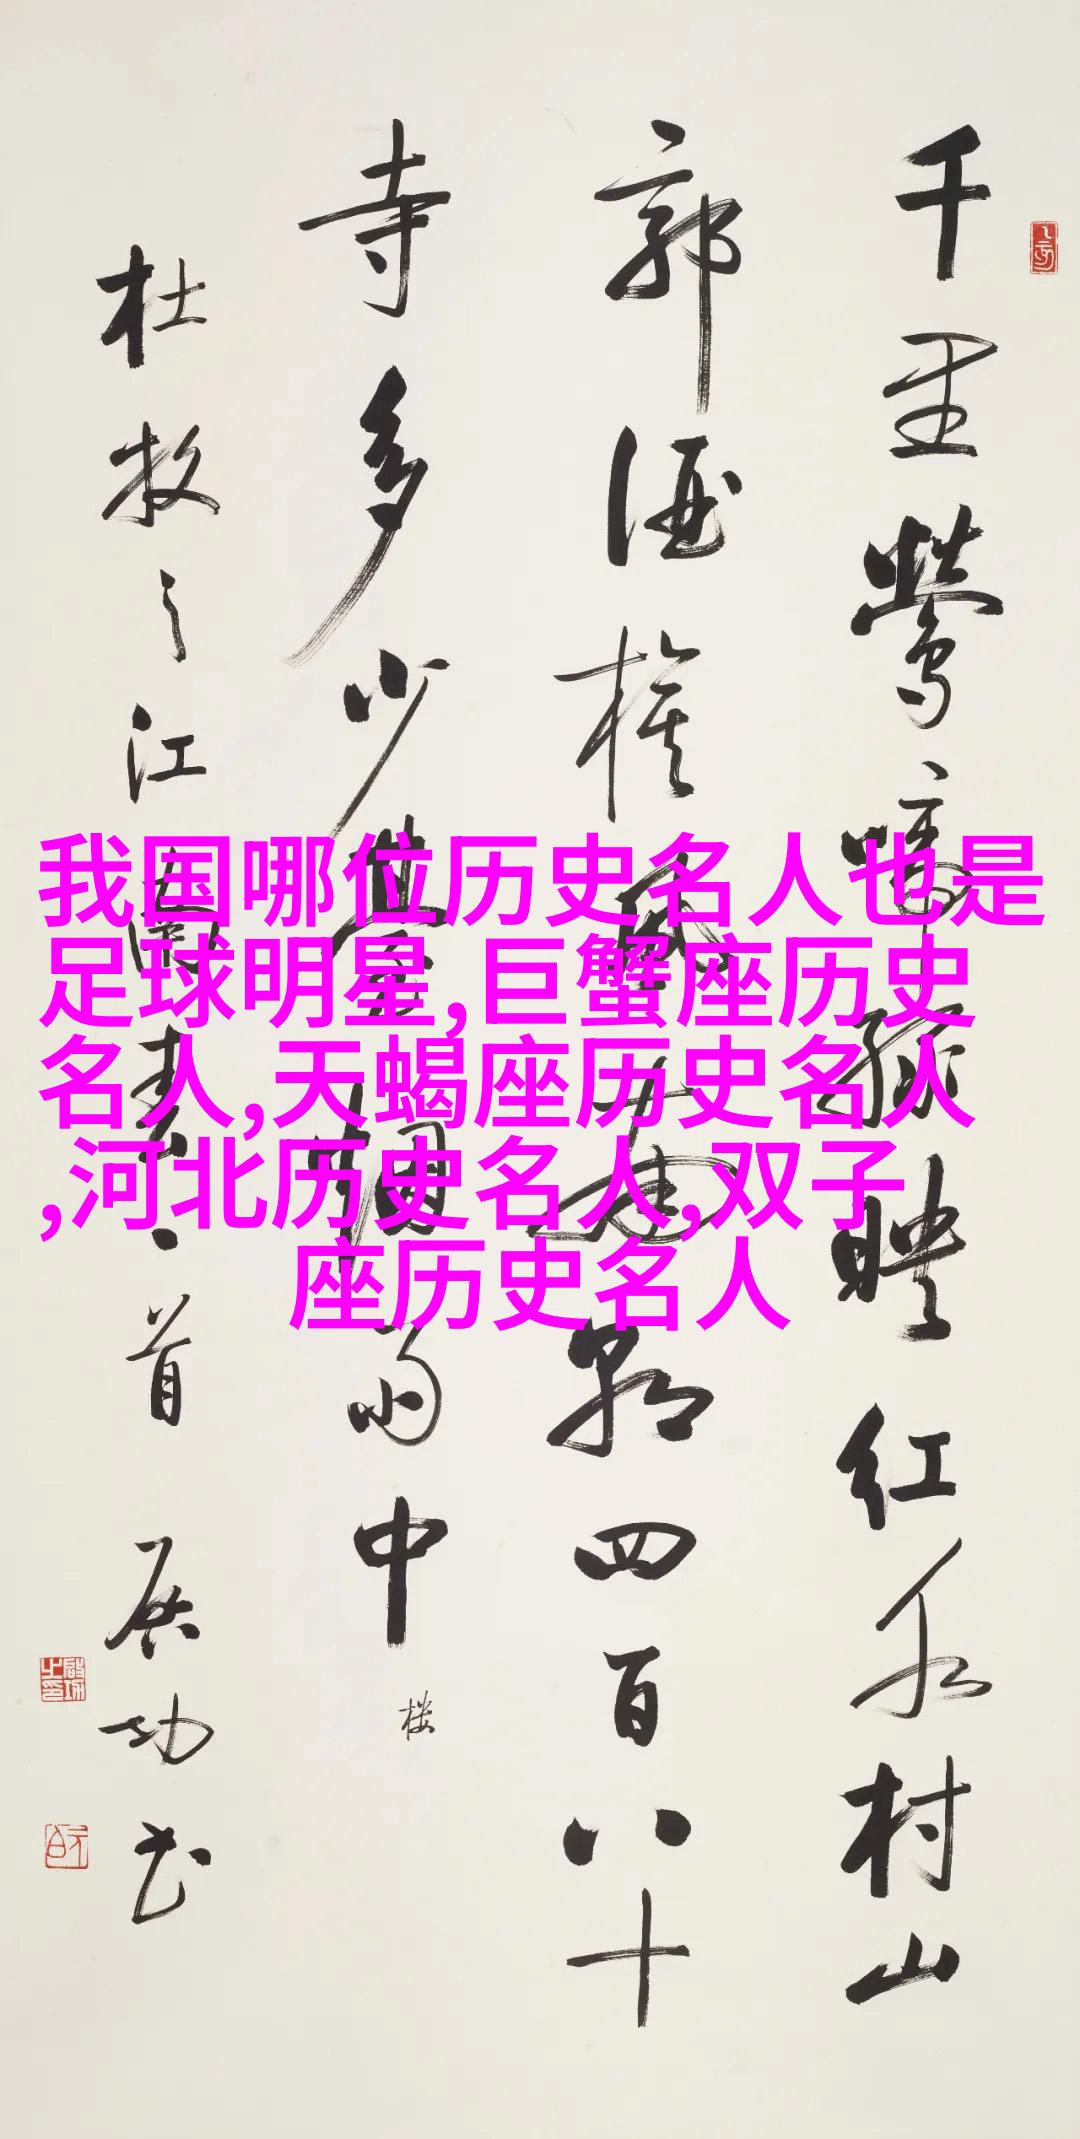 千里鶯啼綠映紅水村山
郭酒旗風南朝四百八十
寺多少臺烟雨中
楼
杜牧之江南春一首 啟功书
我国哪位历史名人也是
足球明星,巨蟹座历史
名人,天蝎座历史名人
,河北历史名人,双子
座历史名人